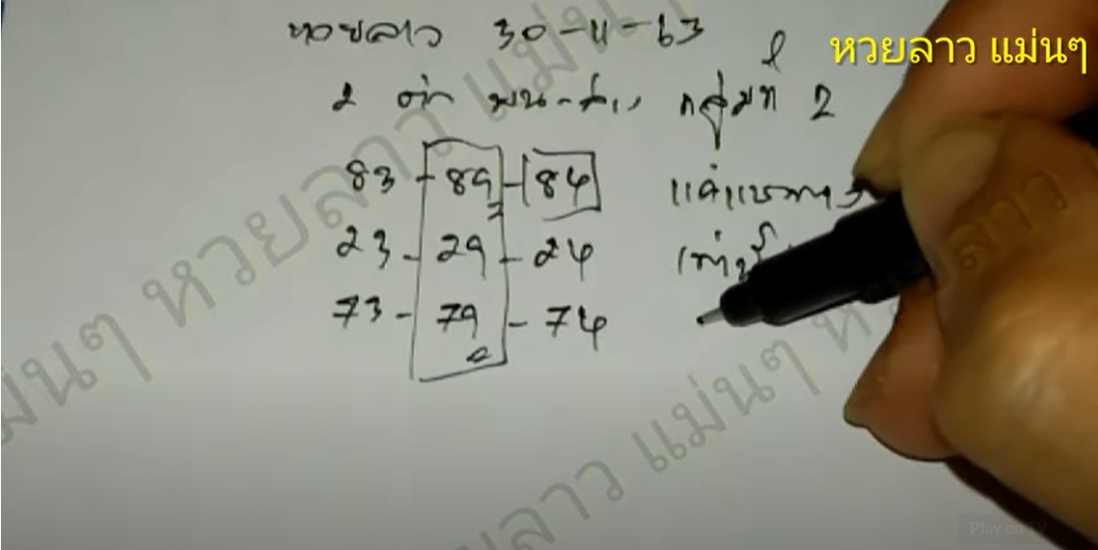 หวยลาว 30-11-63
หวยลาว แม่นๆ
2 ตัว บน-ล่าง กลุ่มที่ 2
83-89-84
23-29-24
73-79-74
แม่นๆ หวยลาว แม่นๆ
หวยลาว
ลาว แม่นๆ
Play on TV